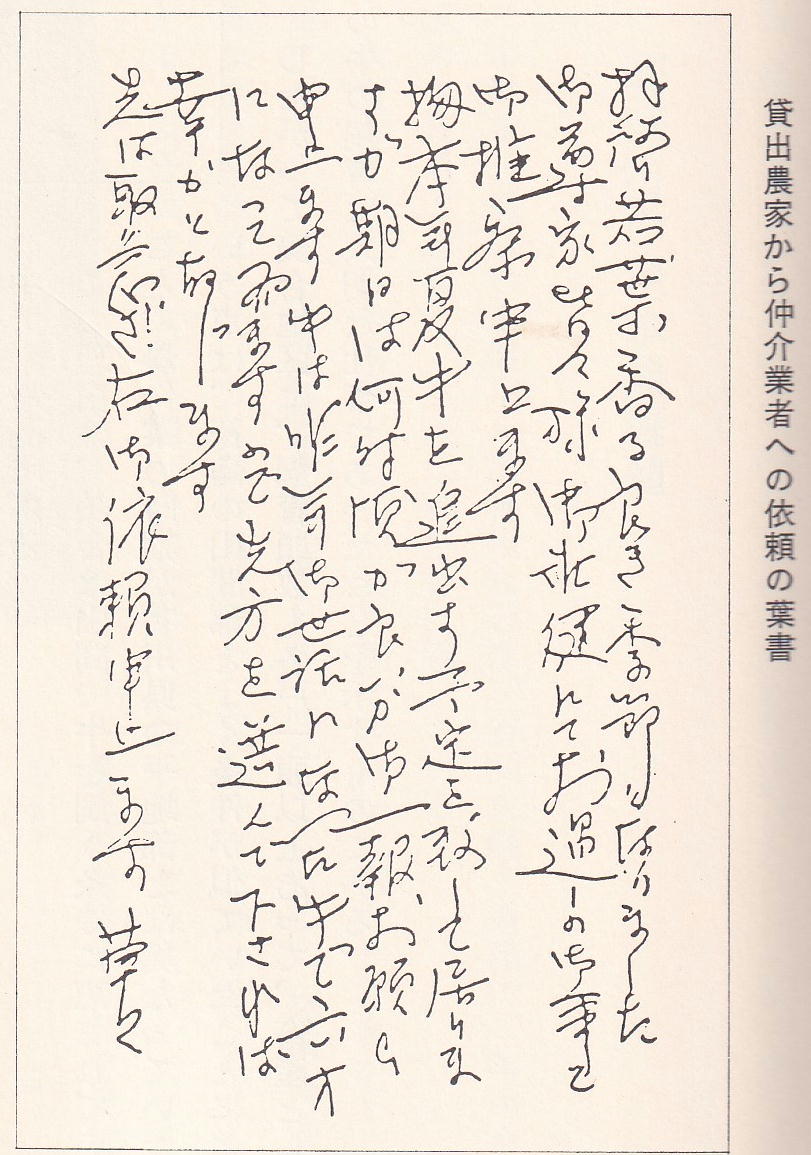 貸出農家から仲介業者への依頼の葉書
拝啓 若葉の香る良き季節になりました
御尊家皆々様御壮健にてお過しの御事と
御推察申上ます
拟本年も夏牛を追出す予定を致して居りま
すが期日は何時頃が良いか御一報お願い
申上ます 牛は昨年御世話になった牛で六才
になって居ますので先方を選んで下されば
幸かと存じます
先は取急ぎ右御依頼申上ます 草々